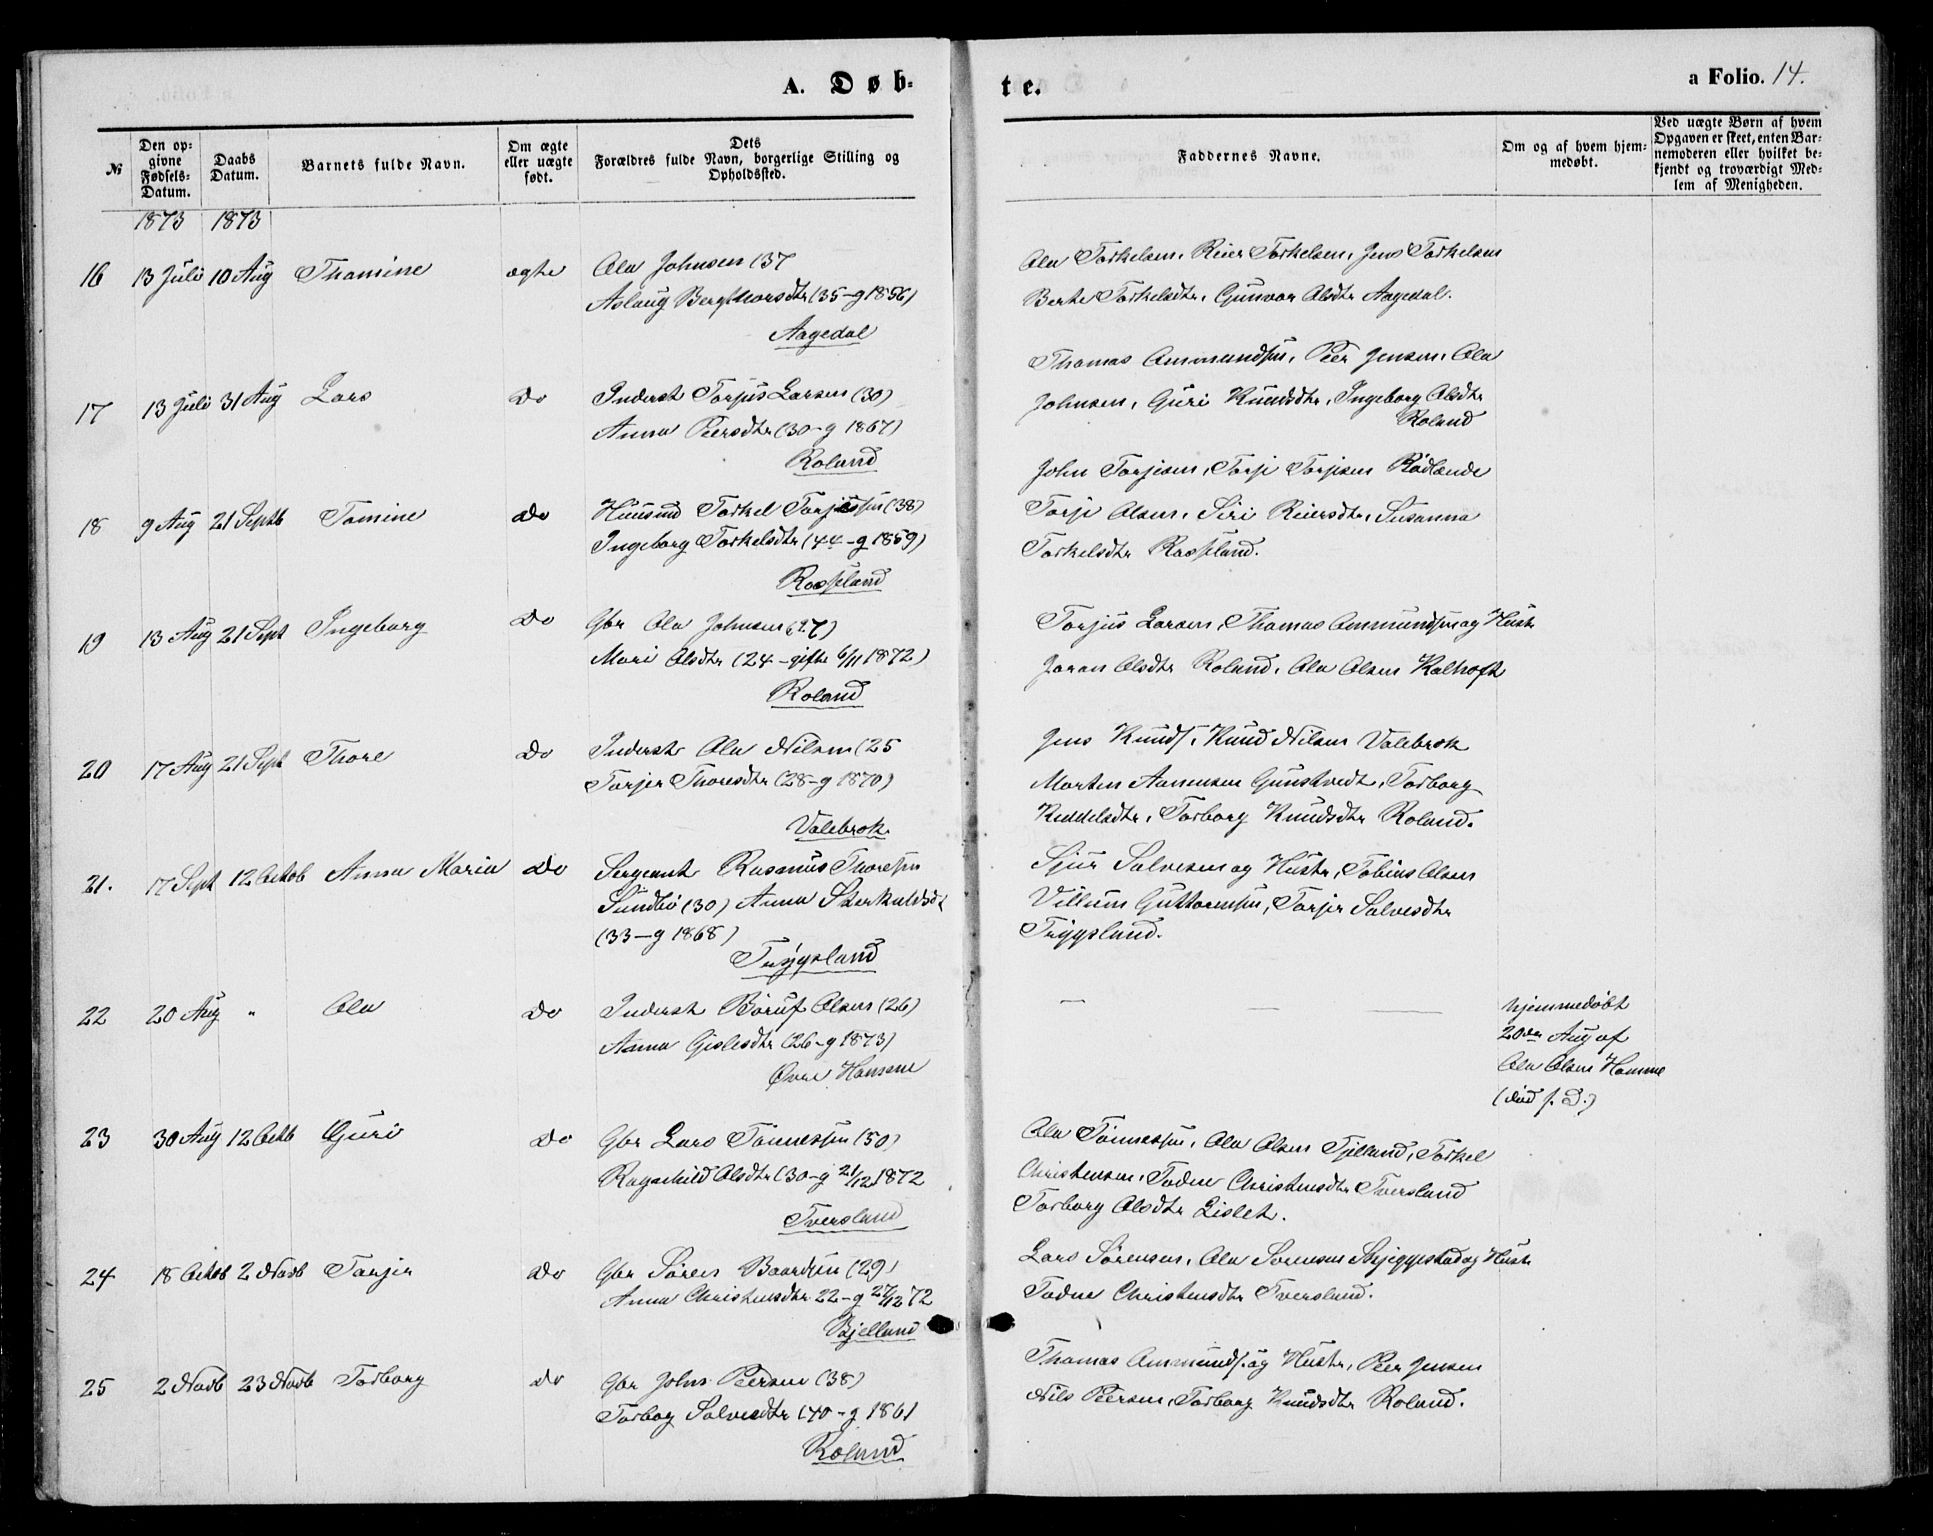 A. Døb-
te.
a Folio. 14.
№
Den op-
givne
Fødsels-
Datum.
Daabs
Datum.
Barnets fulde Navn.
Om ægte
eller uægte
født.
Dets
Forældres fulde Navn, borgerlige Stilling og
Opholdssted.
Faddernes Navne.
Om og af hvem hjem-
medøbt.
Ved uægte Børn af hvem
Opgaven er skeet, enten Bar-
nemoderen eller hvilket be-
kjendt og troværdigt Med-
lem af Menigheden.
1873 1873
16 13 Juli 10 Aug Thomine ægte Ola Johnsen (37
Aslaug Bergthorsdtr (35-g 1856)
Aagedal
Ola Torkelsen, Reier Torkelsen, Jens Torkelsen
Berte Torkelsdtr, Gunvor Olsdtr Aagedal.
17 13 Juli 31 Aug Lars Do Inderst Torjus Larsen (30)
Anna Peersdtr (30-g 1867)
Roland
Thomas Ammundsen, Peer Jensen, Ola
Johnsen, Guri Knudsdtr, Ingeborg Olsdtr
Roland
18 9 Aug 21 Septb Tomine Do Huusmd Torkel Torjussen (38)
Ingeborg Torkelsdtr (44-g 1859)
Rosseland
John Torjisen, Torje Torjisen Rødlende
Torje Olsen, Siri Reiersdtr, Susanna
Torkelsdtr Rosseland.
19 13 Aug 21 Sept Ingeborg Do Gbr Ola Johnsen (27)
Mari Olsdtr (24-gifte 6/11 1872)
Roland
Torjus Larsen, Thomas Ammundsen og Hustr
Joran Olsdtr Roland, Ola Olsen Kalhoft
20 17 Aug 21 Sept Thore Do Inderst Ola Nilsen (25
Torjer Thoresdtr (28-g 1870)
Valebrok
Jens Knuds, Knud Nilsen Valebrok
Morten Aanensen Gunstvedt, Torborg
Keddelsdtr, Torborg Knudsdtr Roland.
21. 17 Sept 12 Octob Anna Maria Do Sergeant Rasmus Thoresen
Sundbø (30) Anna Sterkuldsdt
(33-g 1868)
Trygsland
Sjur Salvesen og Hustr, Tobias Olsen
Villum Guttormsen, Torjer Salvesdtr
Trygsland.
22 20 Aug " Ola Do Inderst Børuf Olsen (26)
Anna Gislesdtr (26-g 1873)
Øvre Homme
— — —
hjemmedøbt
20de Aug af
Ola Olsen Homme
(død f. D.)
23 30 Aug 12 Octb Guri Do Gbr Lars Tønnessen (50)
Ragnhild Olsdtr (30-g 21/12 1872
Tversland
Ola Tønnessen, Ola Olsen Tjelland, Torkel
Christensen, Todne Christensdtr Tversland
Torborg Olsdtr Lislet.
24 18 Octob 2 Novb Torjer Do Gbr Søren Baardsen (29)
Anna Christensdtr 22-g 27/12 72
Bjelland
Lars Sørensen, Ola Sørensen Skjeggestad og Hustr
Todne Christensdtr Tversland.
25 2 Novb 23 Novb Torborg Do Gbr John Peersen (38)
Torbog Salvesdtr (40-g 1861
Roland
Thomas Ammunds. og Hustr, Peer Jensen
Nils Peersen, Torborg Knudsdtr Roland.